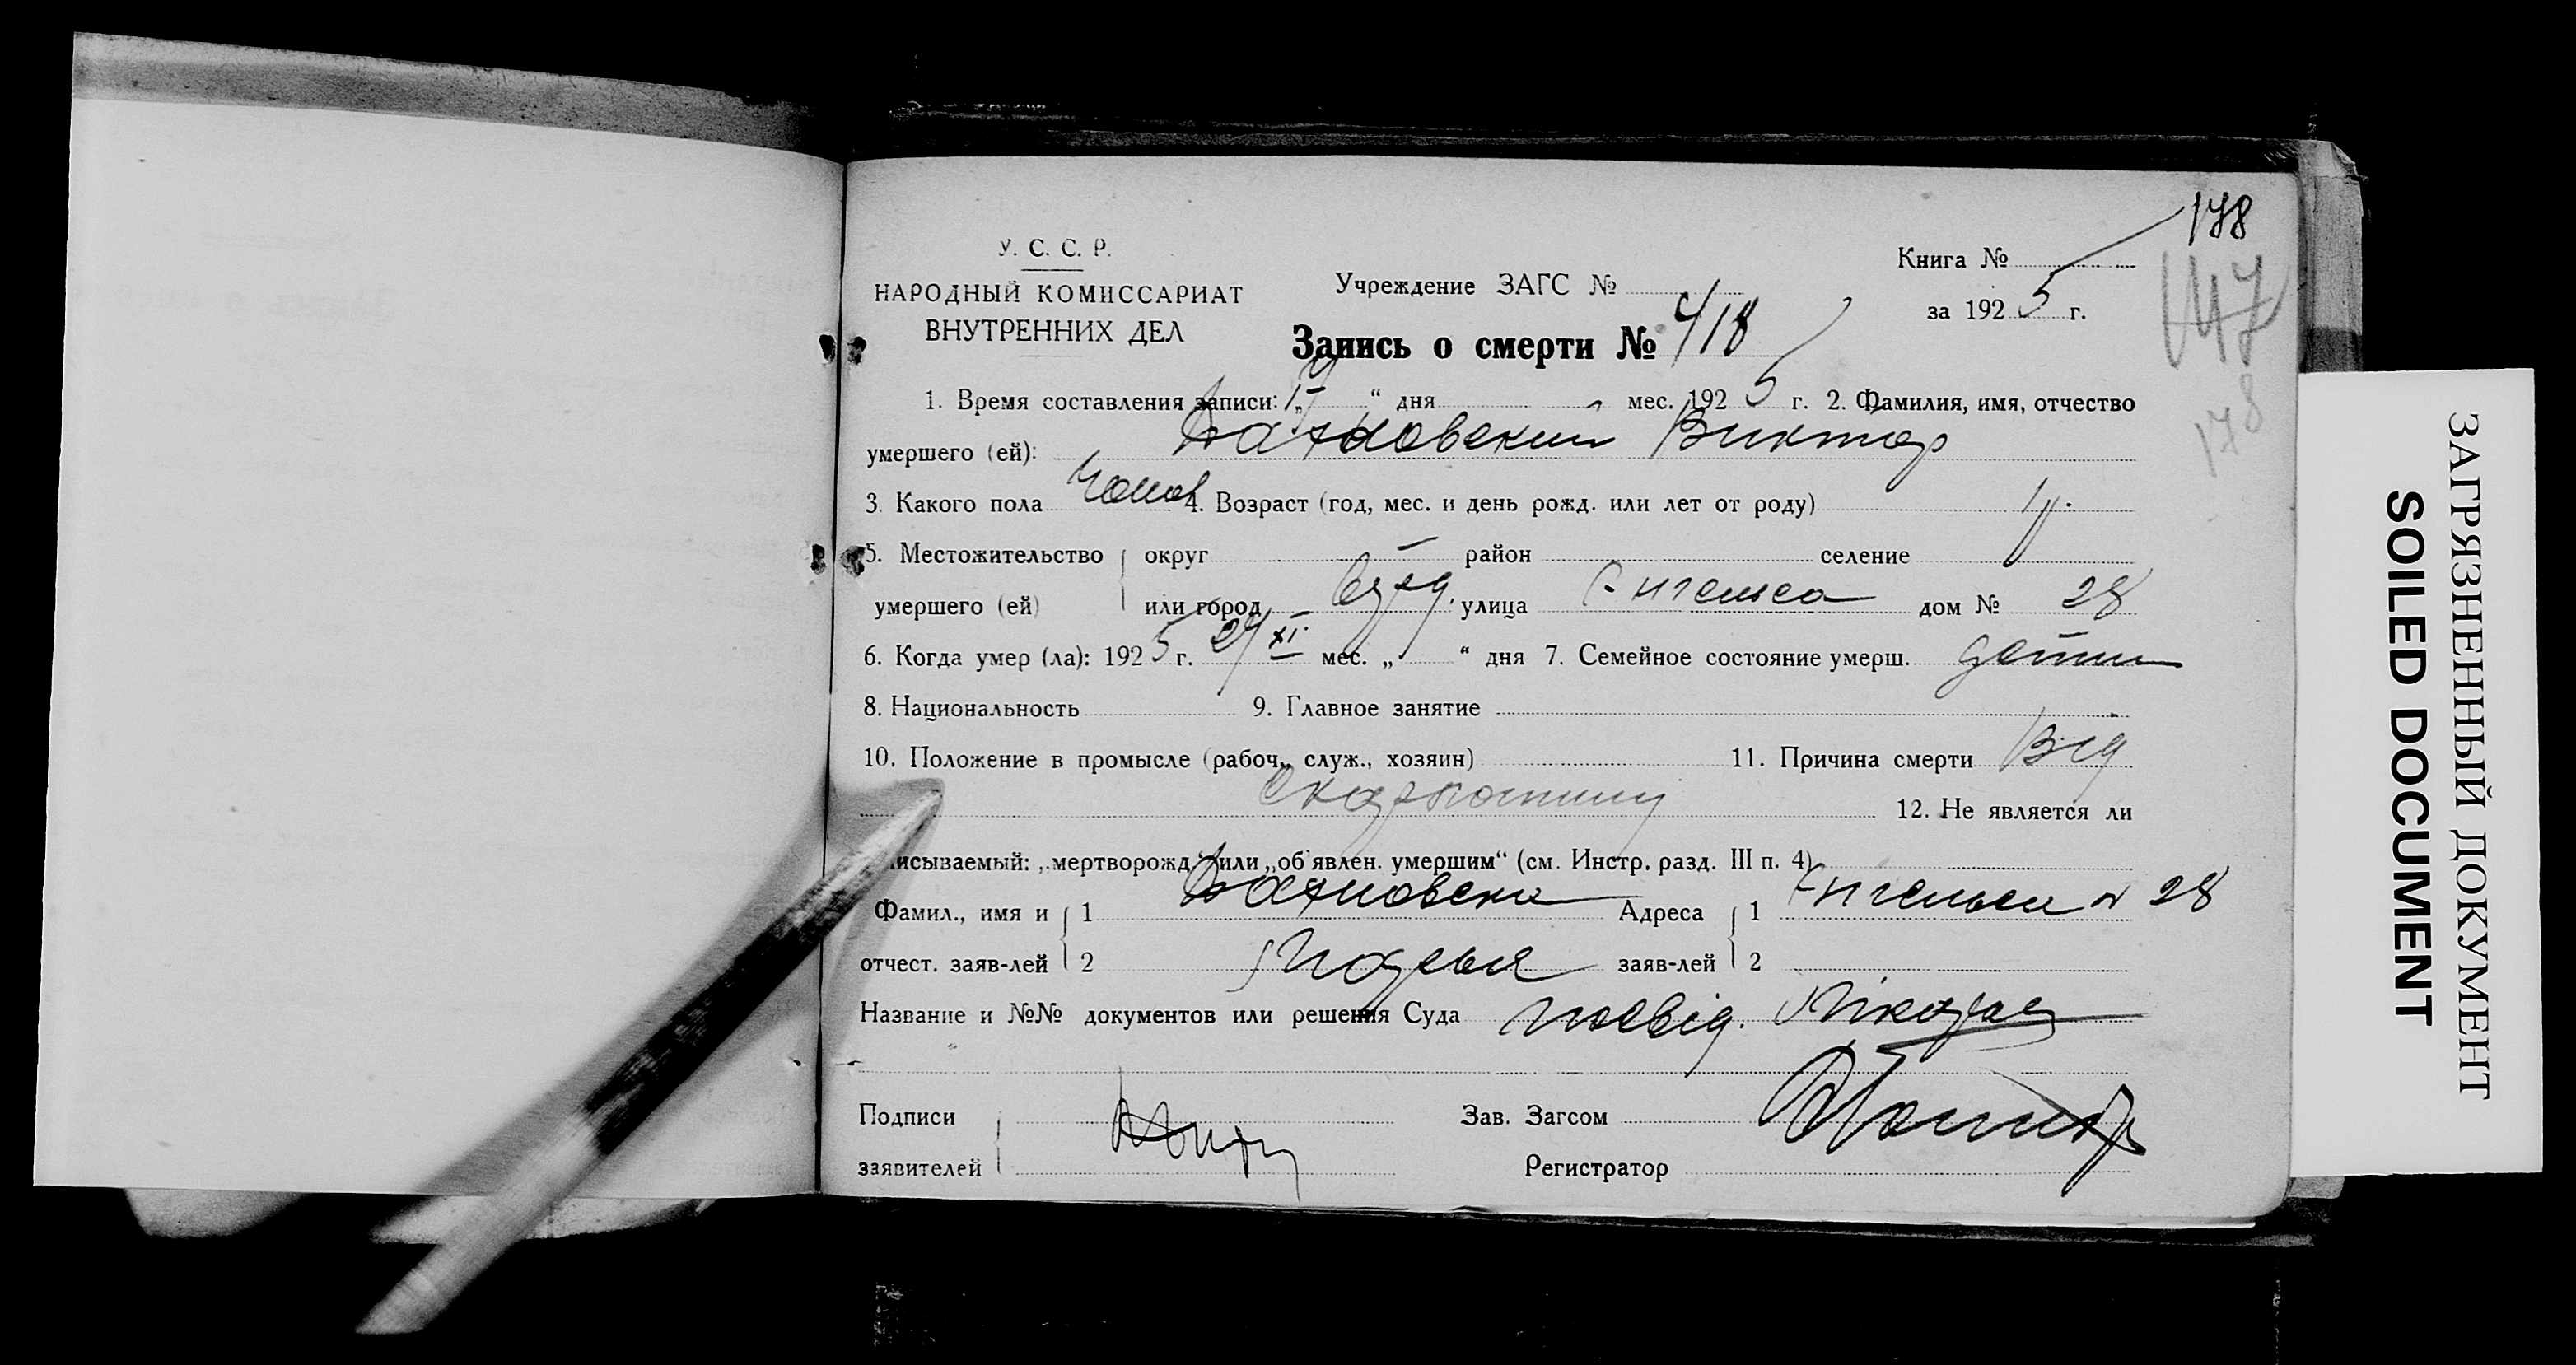 178
У. С. С. Р.
Книга №
147
НАРОДНЫЙ КОМИССАРИАТ
Учреждение ЗАГС №
за 1925 г.
ВНУТРЕННИХ ДЕЛ
Запись о смерти № 418
178
1. Время составления записи: „ “ дня мес. 1925 г. 2. Фамилия, имя, отчество
умершего (ей): Виктор
3. Какого пола 4. Возраст (год, мес. и день рожд. или лет от роду)
5. Местожительство округ – район селение
умершего (ей) или город улица Енгельса дом № 28
6. Когда умер (ла): 1925 г. XI мес. „ “ дня 7. Семейное состояние умерш.
8. Национальность 9. Главное занятие
10. Положение в промысле (рабоч., служ., хозяин) 11. Причина смерти Від
скарлатини
12. Не является ли
исываемый: „мертворожд.“ или „об'явлен. умершим“ (см. Инстр. разд. III п. 4)
Фамил., имя и 1 Адреса 1 Енгельса № 28
отчест. заяв-лей 2 заяв-лей 2
Название и №№ документов или решения Суда
Подписи
Зав. Загсом
заявителей
Регистратор
ЗАГРЯЗНЕННЫЙ ДОКУМЕНТ
SOILED DOCUMENT